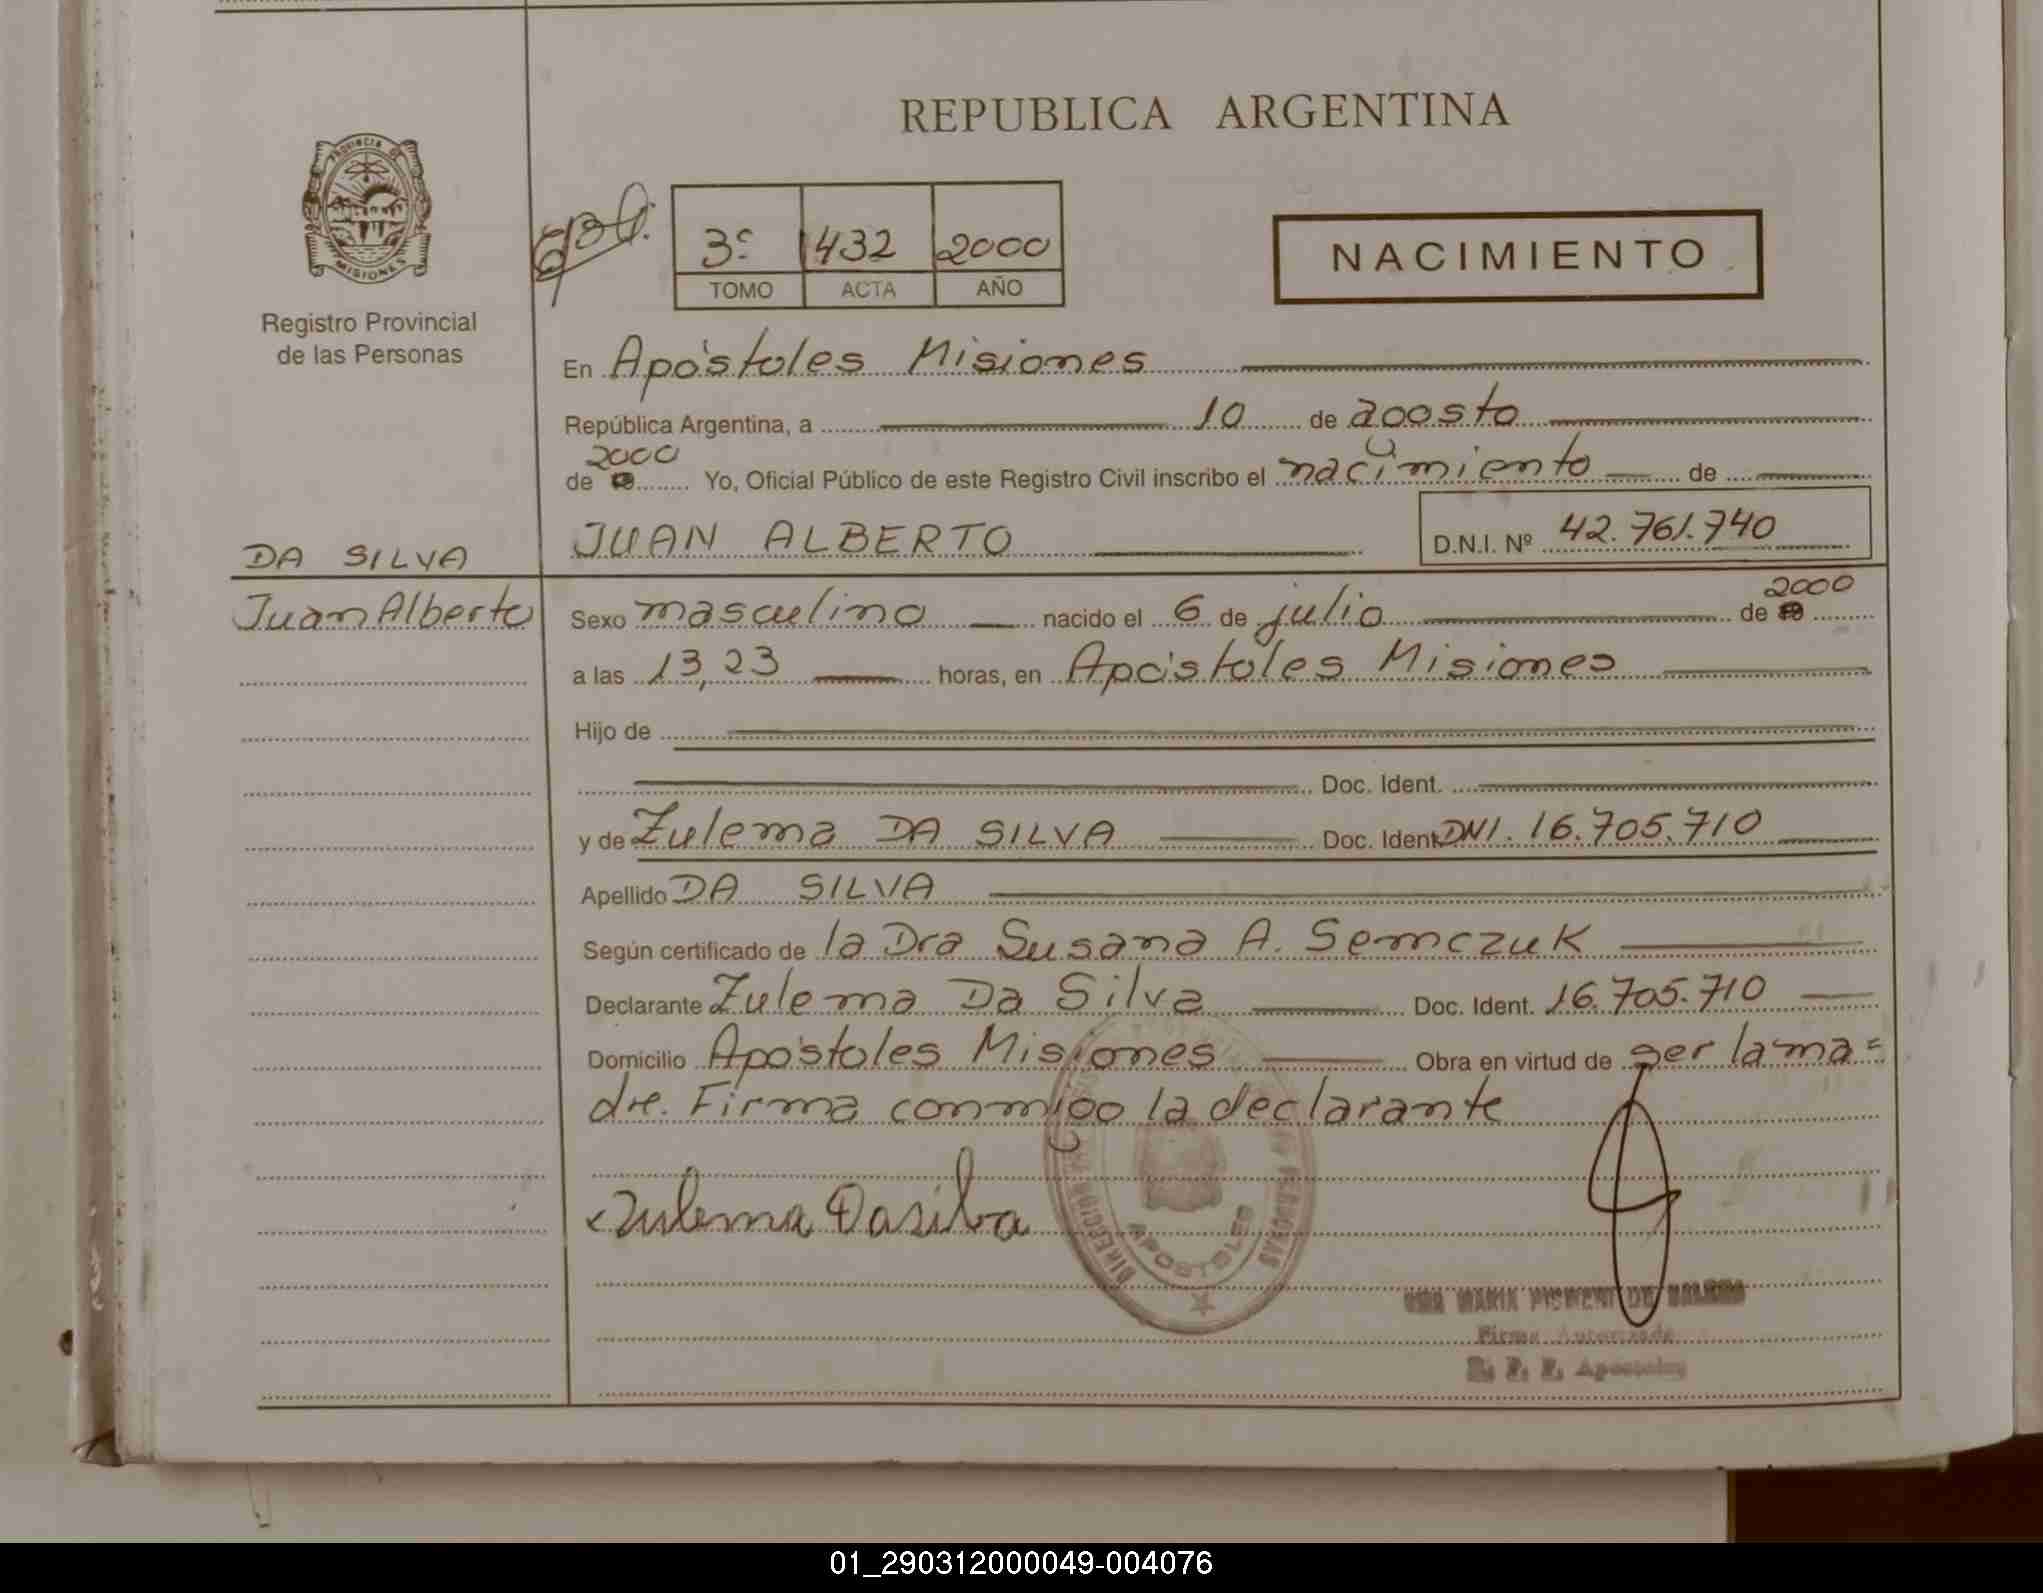 REPUBLICA ARGENTINA
PROVINCIA DE
MISIONES
Registro Provincial
de las Personas
3º 432 2000
TOMO ACTA AÑO
NACIMIENTO
En Apóstoles Misiones
República Argentina, a 10 de agosto
2000
de Yo, Oficial Público de este Registro Civil inscribo el nacimiento de
DA SILVA
JUAN ALBERTO D.N.I. Nº 42.761.740
Juan Alberto
2000
Sexo masculino nacido el 6 de julio de
a las 13,23 horas, en Apóstoles Misiones
Hijo de
Doc. Ident.
y de Zulema DA SILVA Doc. Ident DNI. 16.705.710
Apellido DA SILVA
Según certificado de la Dra Susana A. Semczuk
Declarante Zulema Da Silva Doc. Ident. 16.705.710
Domicilio Apóstoles Misiones Obra en virtud de ser la ma=
dre. Firma conmigo la declarante
Zulema Dasilva
APOSTOLES
Firma Autorizada
R. P. P. Apostoles
01_290312000049-004076